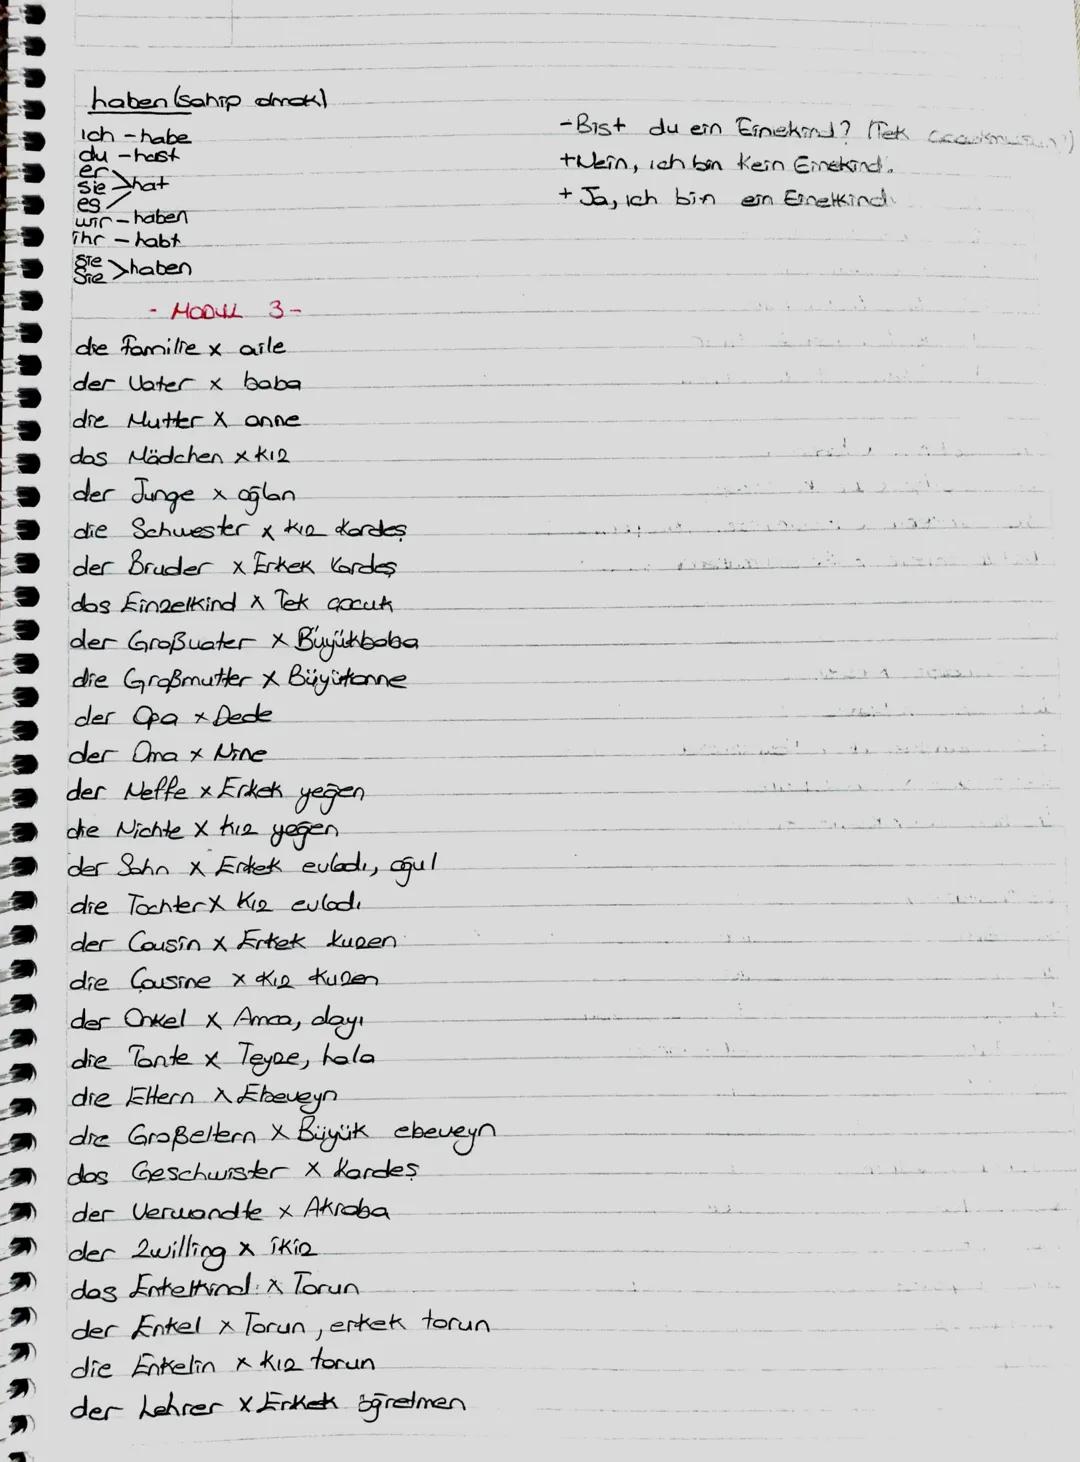 haben (sahip olmak)
ich - habe
du - hast
er
sie > hat
es
wir - haben
ihr - habt
sie
Sie > haben
- Bist du ein Einekind? (Tek
+ Nein, ich bin kein Einekind.
+ Ja, ich bin ein Einelkind
- MODUL 3 -
die Familie x aile
der Vater x baba
die Mutter x anne
das Mädchen x kız
der Junge x oğlan
die Schwester x kız kardeş
der Bruder x Erkek kardeş
das Einzelkind x Tek çocuk
der Großvater x Büyükbaba
die Großmutter x Büyükanne
der Opa x Dede
der Oma x Nine
der Neffe x Erkek yeğen
die Nichte x kız yeğen
der Sohn x Erkek evladı, oğul
die Tochter x Kız evladı
der Cousin x Erkek kuzen
die Cousine x Kız kuzen
der Onkel x Amca, dayı
die Tante x Teyze, hala
die Eltern x Ebeveyn
die Großeltern x Büyük ebeveyn
das Geschwister x Kardeş
der Verwandte x Akraba
der Zwilling x ikiz
das Enkelkind x Torun
der Enkel x Torun, erkek torun
die Enkelin x kız torun
der Lehrer x Erkek öğretmen